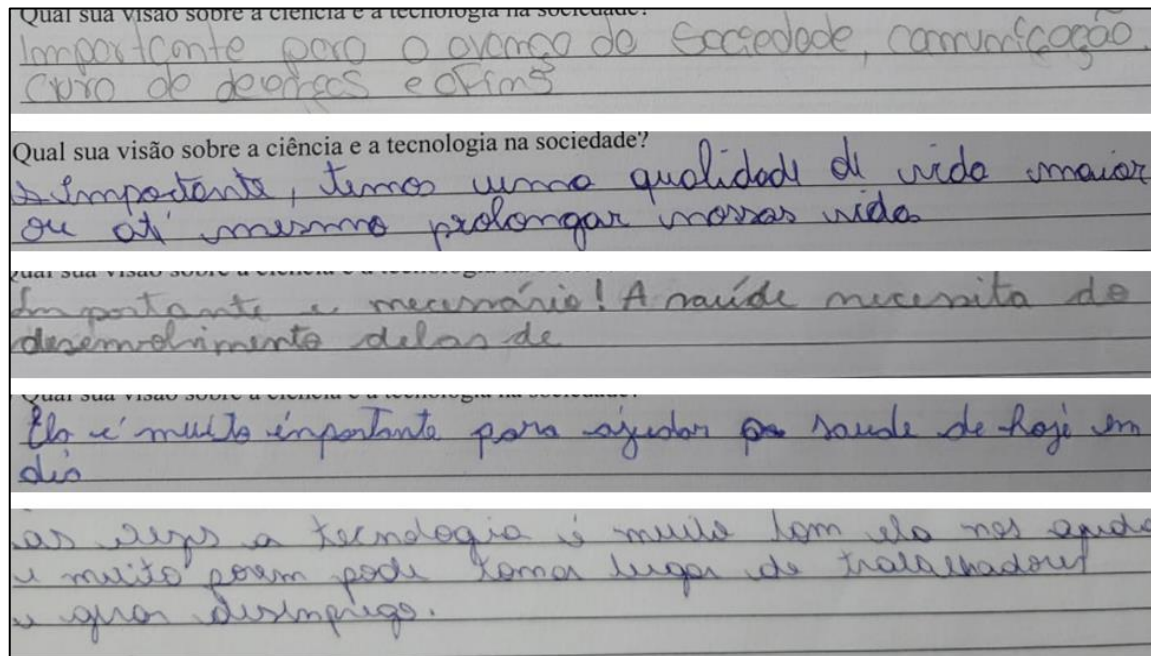 Qual sua visão sobre a ciência e a tecnologia na sociedade?
Importante para o avanço da sociedade, comunicação.
cura de doenças e afins
Qual sua visão sobre a ciência e a tecnologia na sociedade?
Importante, temos uma qualidade de vida maior
ou até mesmo prolongar nossas vida
Qual sua visão sobre a ciência e a tecnologia na sociedade?
Importante e necessário! A saúde necessita do
desenvolvimento delas de
Qual sua visão sobre a ciência e a tecnologia na sociedade?
Ela é muito inportante para ajudar saude de hoje em
dia
as vezes a tecnologia é muito bom ela nos ajuda
e muito porem pode tomar lugar de trabalhadores
e gerar desimprego.